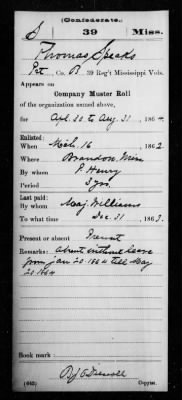 (Confederate.)
S 39 Miss.
Thomas Speaks
Pvt, Co. B, 39 Reg't Mississippi Vols.
Appears on
Company Muster Roll
of the organization named above,
for Apl. 30 to Aug 31, 1864.
Enlisted:
When Mch. 16, 1862
Where Brandon, Miss
By whom P. Henry
Period 3 yrs.
Last paid:
By whom Maj. Williams
To what time Dec. 31, 1863.
Present or absent Present
Remarks: Absent without leave
from Jan 20 1864 till May
20 1864
Book mark:
(642) Copyist.